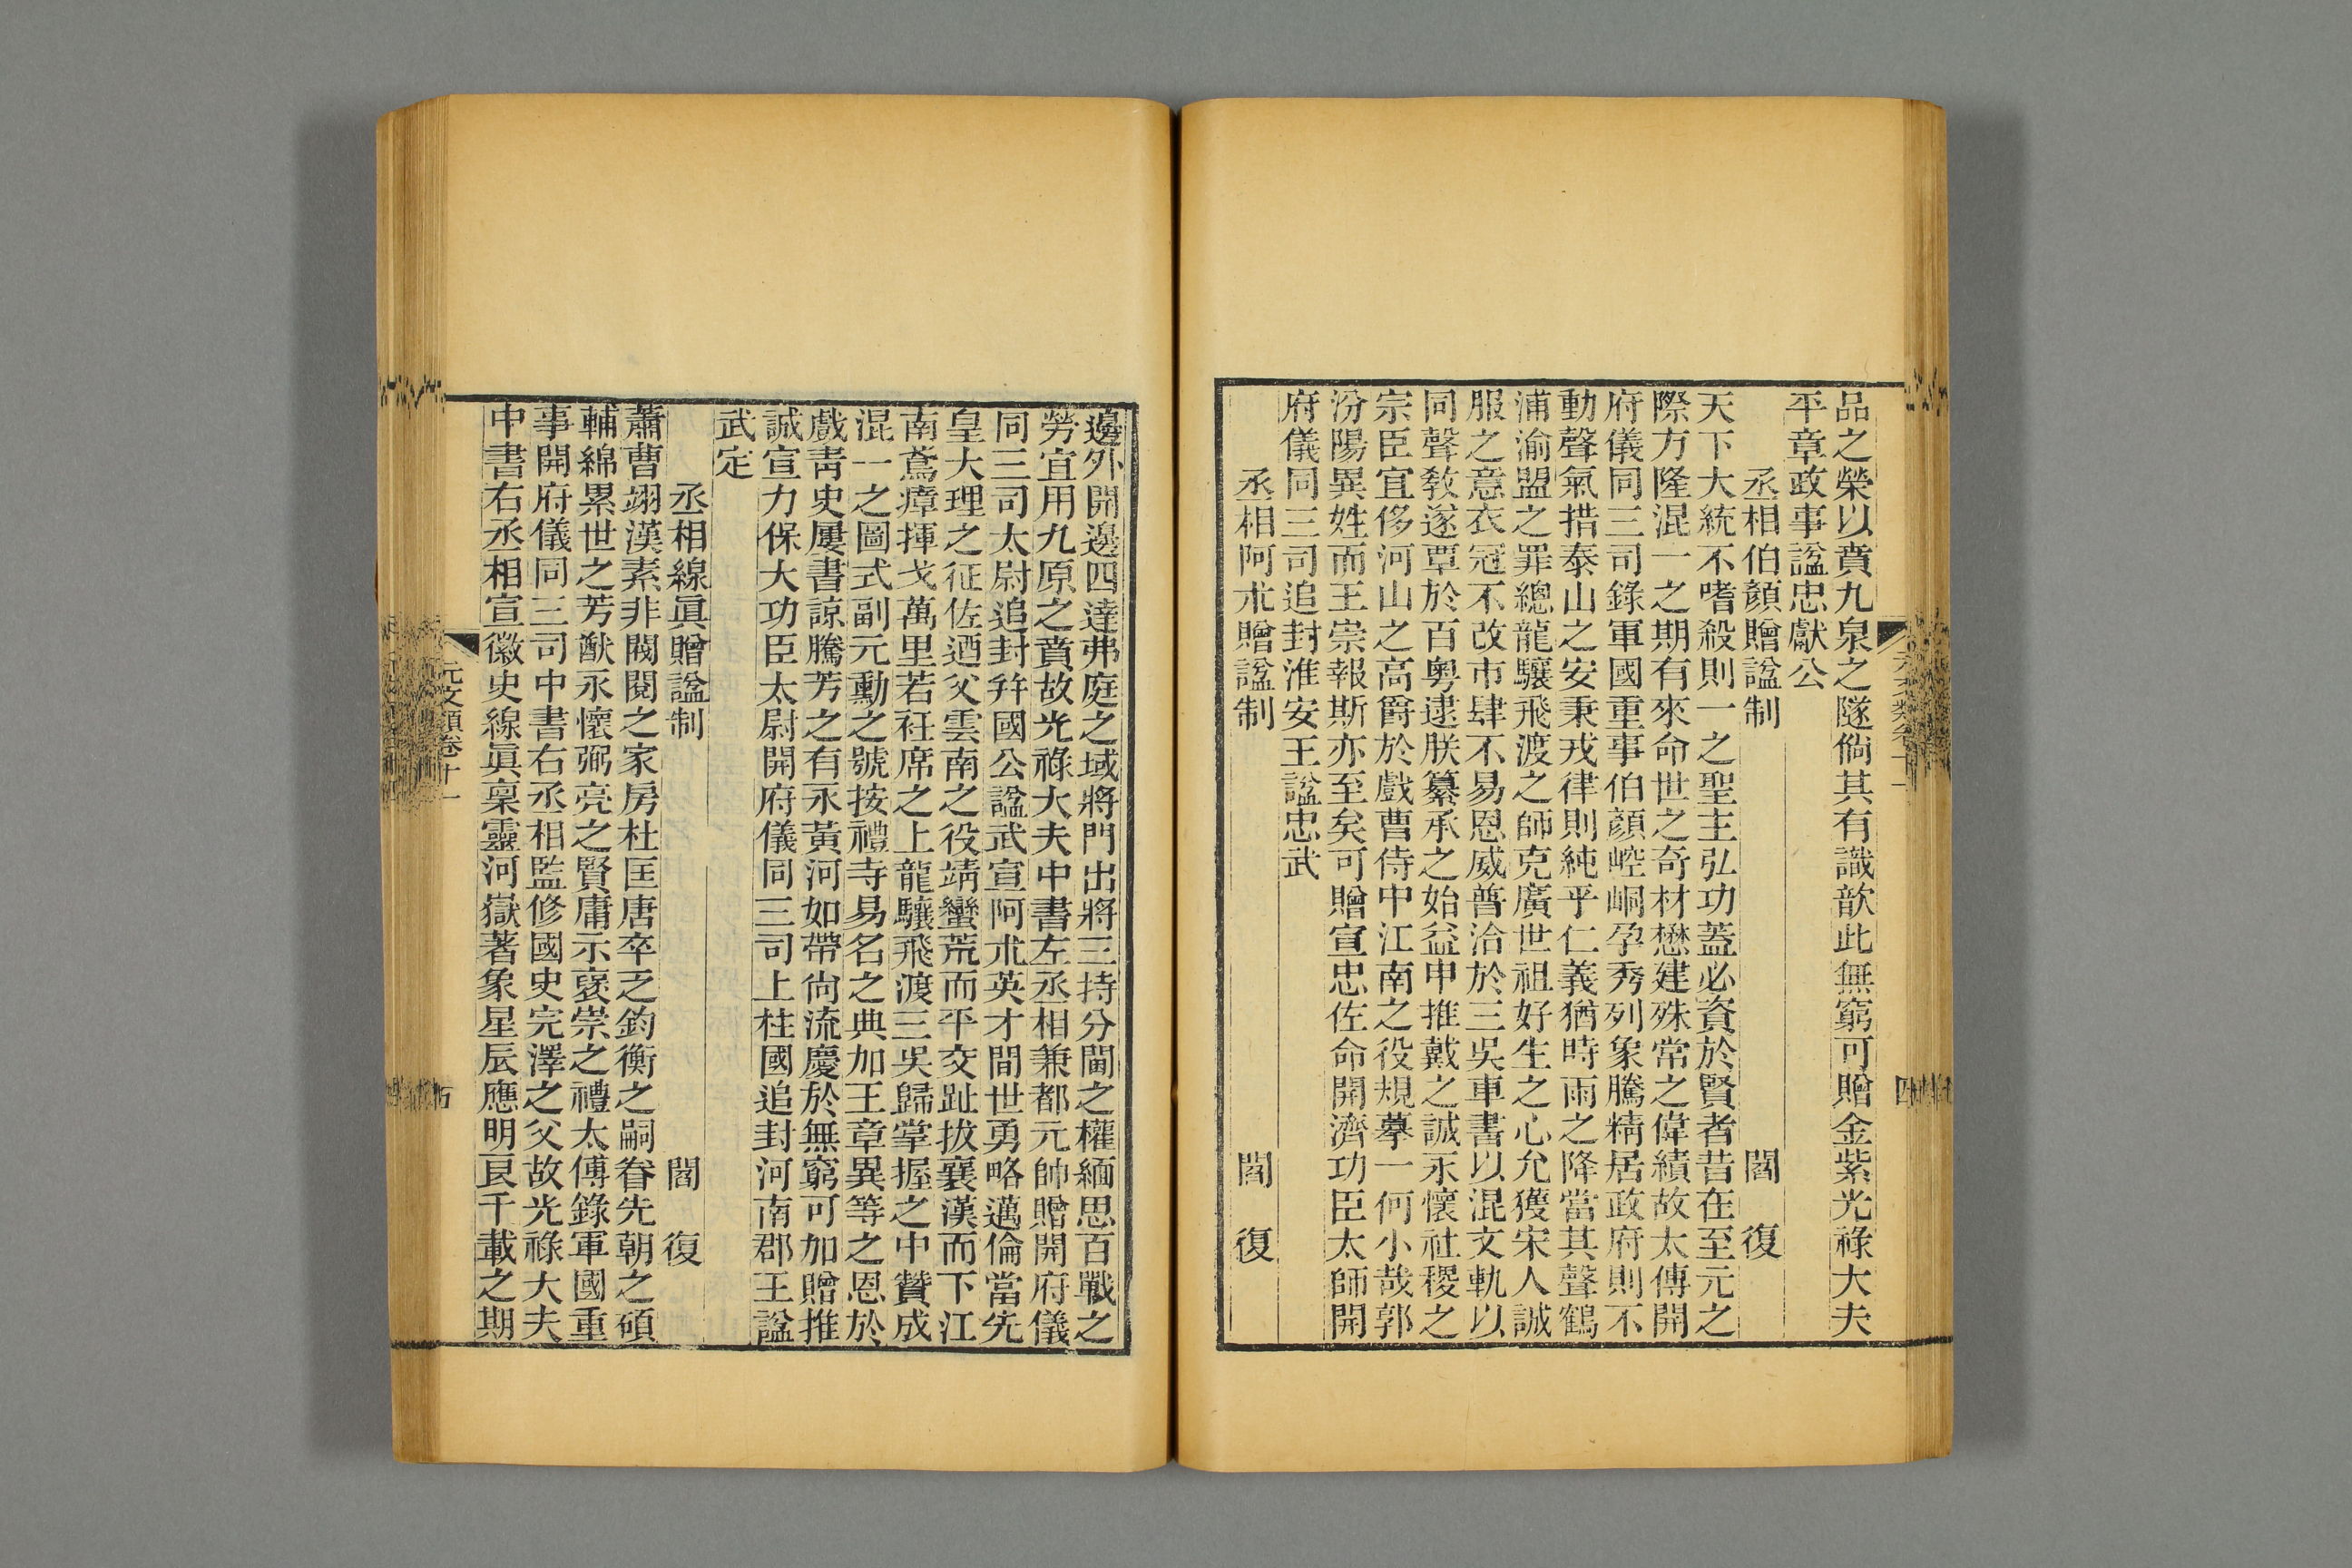 品之榮以賁九泉之隧倘其有識歆此無窮可贈金紫光祿大夫
平章政事諡忠獻公
丞相伯顏贈諡制 閻 復
天下大統不嗜殺則一之聖主弘功蓋必資於賢者昔在至元之
際方隆混一之期有來命世之奇材懋建殊常之偉績故太傅開
府儀同三司錄軍國重事伯顏崆峒孕秀列象騰精居政府則不
動聲氣措泰山之安秉戎律則純乎仁義猶時雨之降當其聲鶴
浦渝盟之罪總龍驤飛渡之師克廣世祖好生之心允獲宋人誠
服之意衣冠不改市肆不易恩威普洽於三吳車書以混文軌以
同聲敎遂覃於百粵逮朕纂承之始益申推戴之誠永懷社稷之
宗臣宜侈河山之高爵於戲曹侍中江南之役規摹一何小哉郭
汾陽異姓而王崇報斯亦至矣可贈宣忠佐命開濟功臣太師開
府儀同三司追封淮安王諡忠武
丞相阿朮贈諡制 閻 復
邊外開邊四達弗庭之域將門出將三持分閫之權緬思百戰之
勞宜用九原之賁故光祿大夫中書左丞相兼都元帥贈開府儀
同三司太尉追封幷國公諡武宣阿朮英才間世勇略邁倫當先
皇大理之征佐迺父雲南之役靖蠻荒而平交趾拔襄漢而下江
南鳶瘴揮戈萬里若衽席之上龍驤飛渡三吳歸掌握之中贊成
混一之圖式副元勳之號按禮寺易名之典加王章異等之恩於
戲靑史屢書諒騰芳之有永黃河如帶尙流慶於無窮可加贈推
誠宣力保大功臣太尉開府儀同三司上柱國追封河南郡王諡
武定
丞相線眞贈諡制 閻 復
蕭曹翊漢素非閥閱之家房杜匡唐卒乏鈞衡之嗣眷先朝之碩
輔綿累世之芳猷永懷弼亮之賢庸示褒崇之禮太傅錄軍國重
事開府儀同三司中書右丞相監修國史完澤之父故光祿大夫
中書右丞相宣徽史線眞稟靈河嶽著象星辰應明良千載之期
元文類卷十一